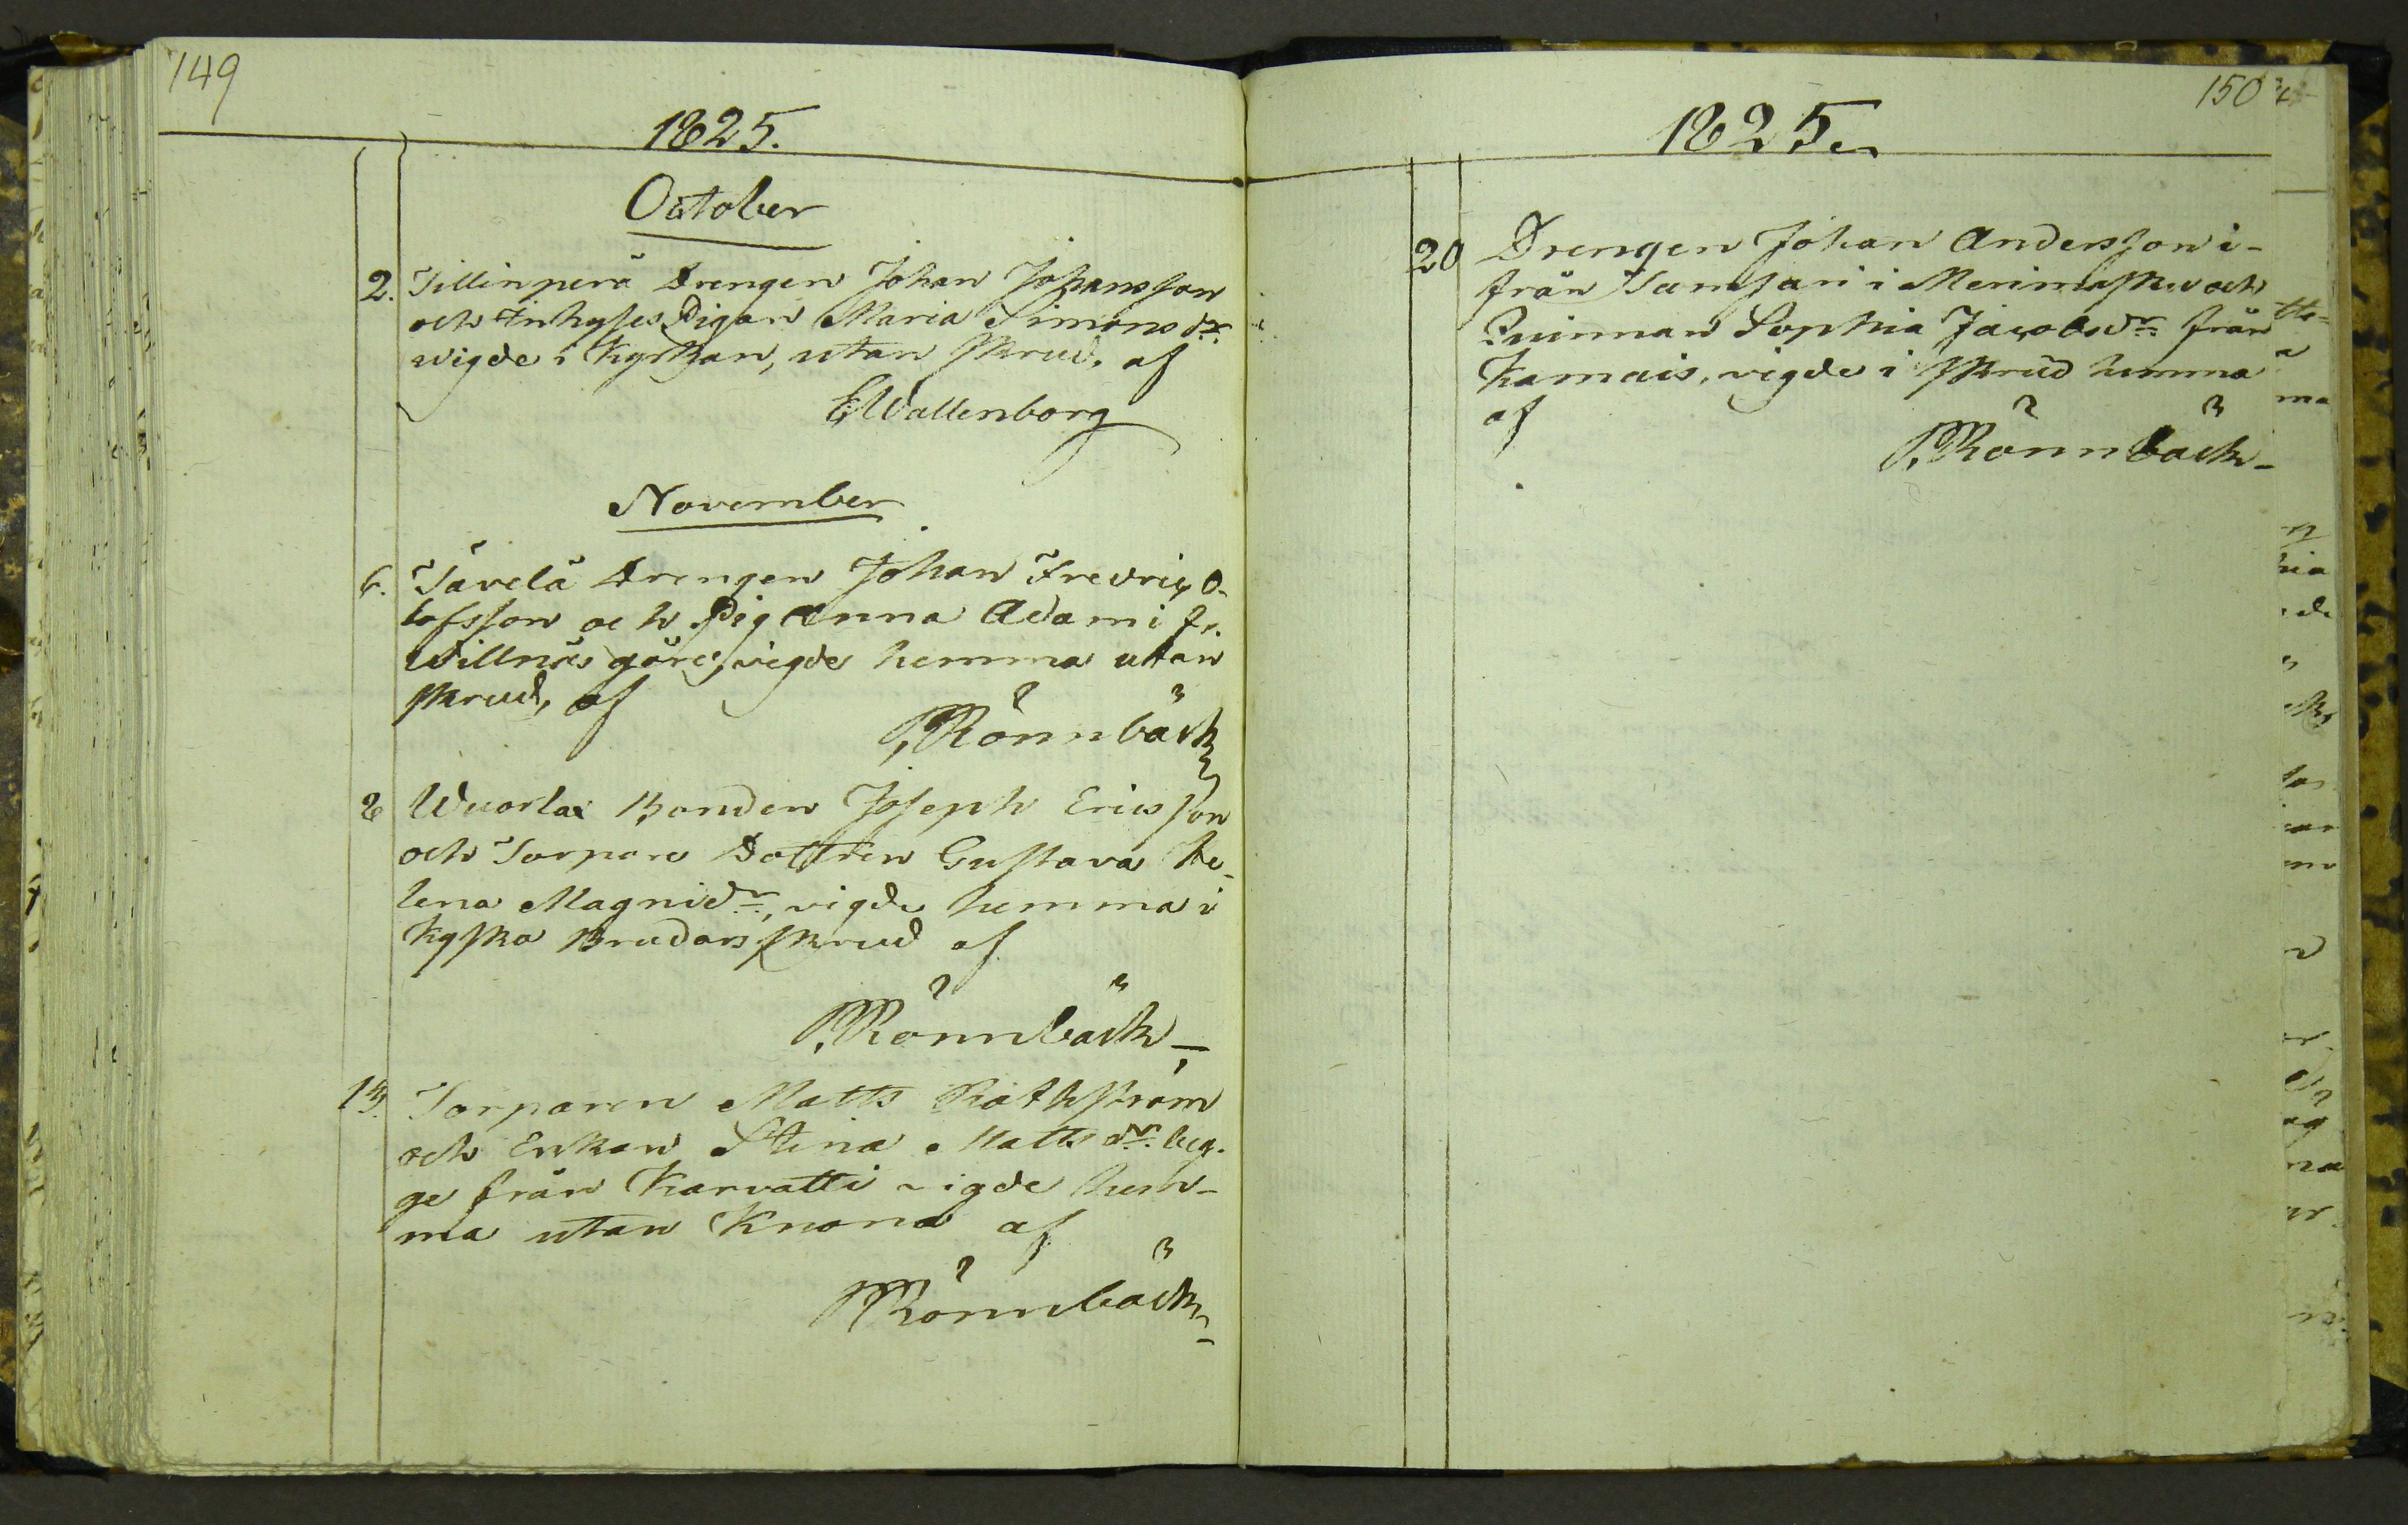 149
1825.
October
2. Tillinperä Drengen Johan Johansson
och Inhyses Pigan Maria Simons dr.
wigde i Kyrkan, utan skrud, af
E Wallenborg
November
6. Tävelä Drengen Johan Fredric O-
lofsson och Pig Anna Adami fr.
Willnäs gård, vigde hemma utan
skrud, af
P. Rönnbäck
8 Wuorla Bonden Joseph Ericsson
och Torpare Dottren Gustava He-
lena Magnidr., vigde hemma i
Kyska Brudars skrud af
P. Rönnbäck
13. Torparen Matts
och Enkan Stina Mattsdr. beg-
ge från Karvatti vigde hem-
ma utan Krona af
P Rönnbäck
150
1825.
20 Drengen Johan Andersson i-
från Tamsari i Merimasku och
Quinnan Sophia Jacobsdr. från
Kamais, vigde i skrud hemma
af
P. Rönnbäck